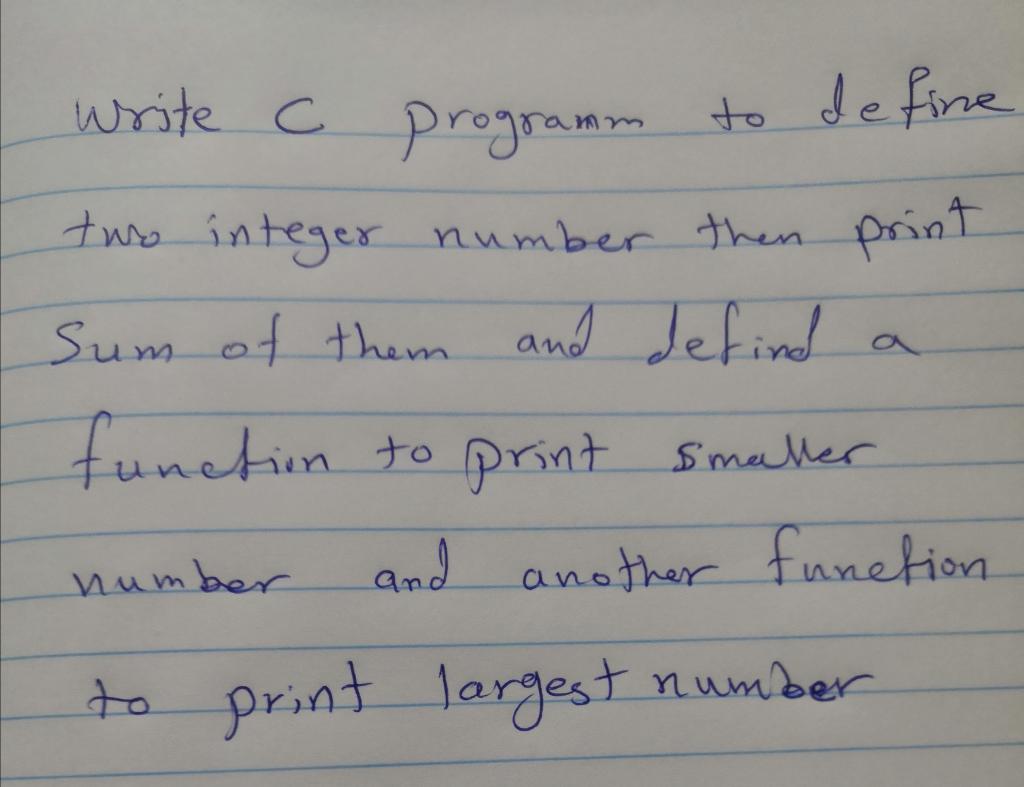 Write C programm to define
two integer number then print
Sum of them and defind a
function to print smaller
number and another function
to print largest number